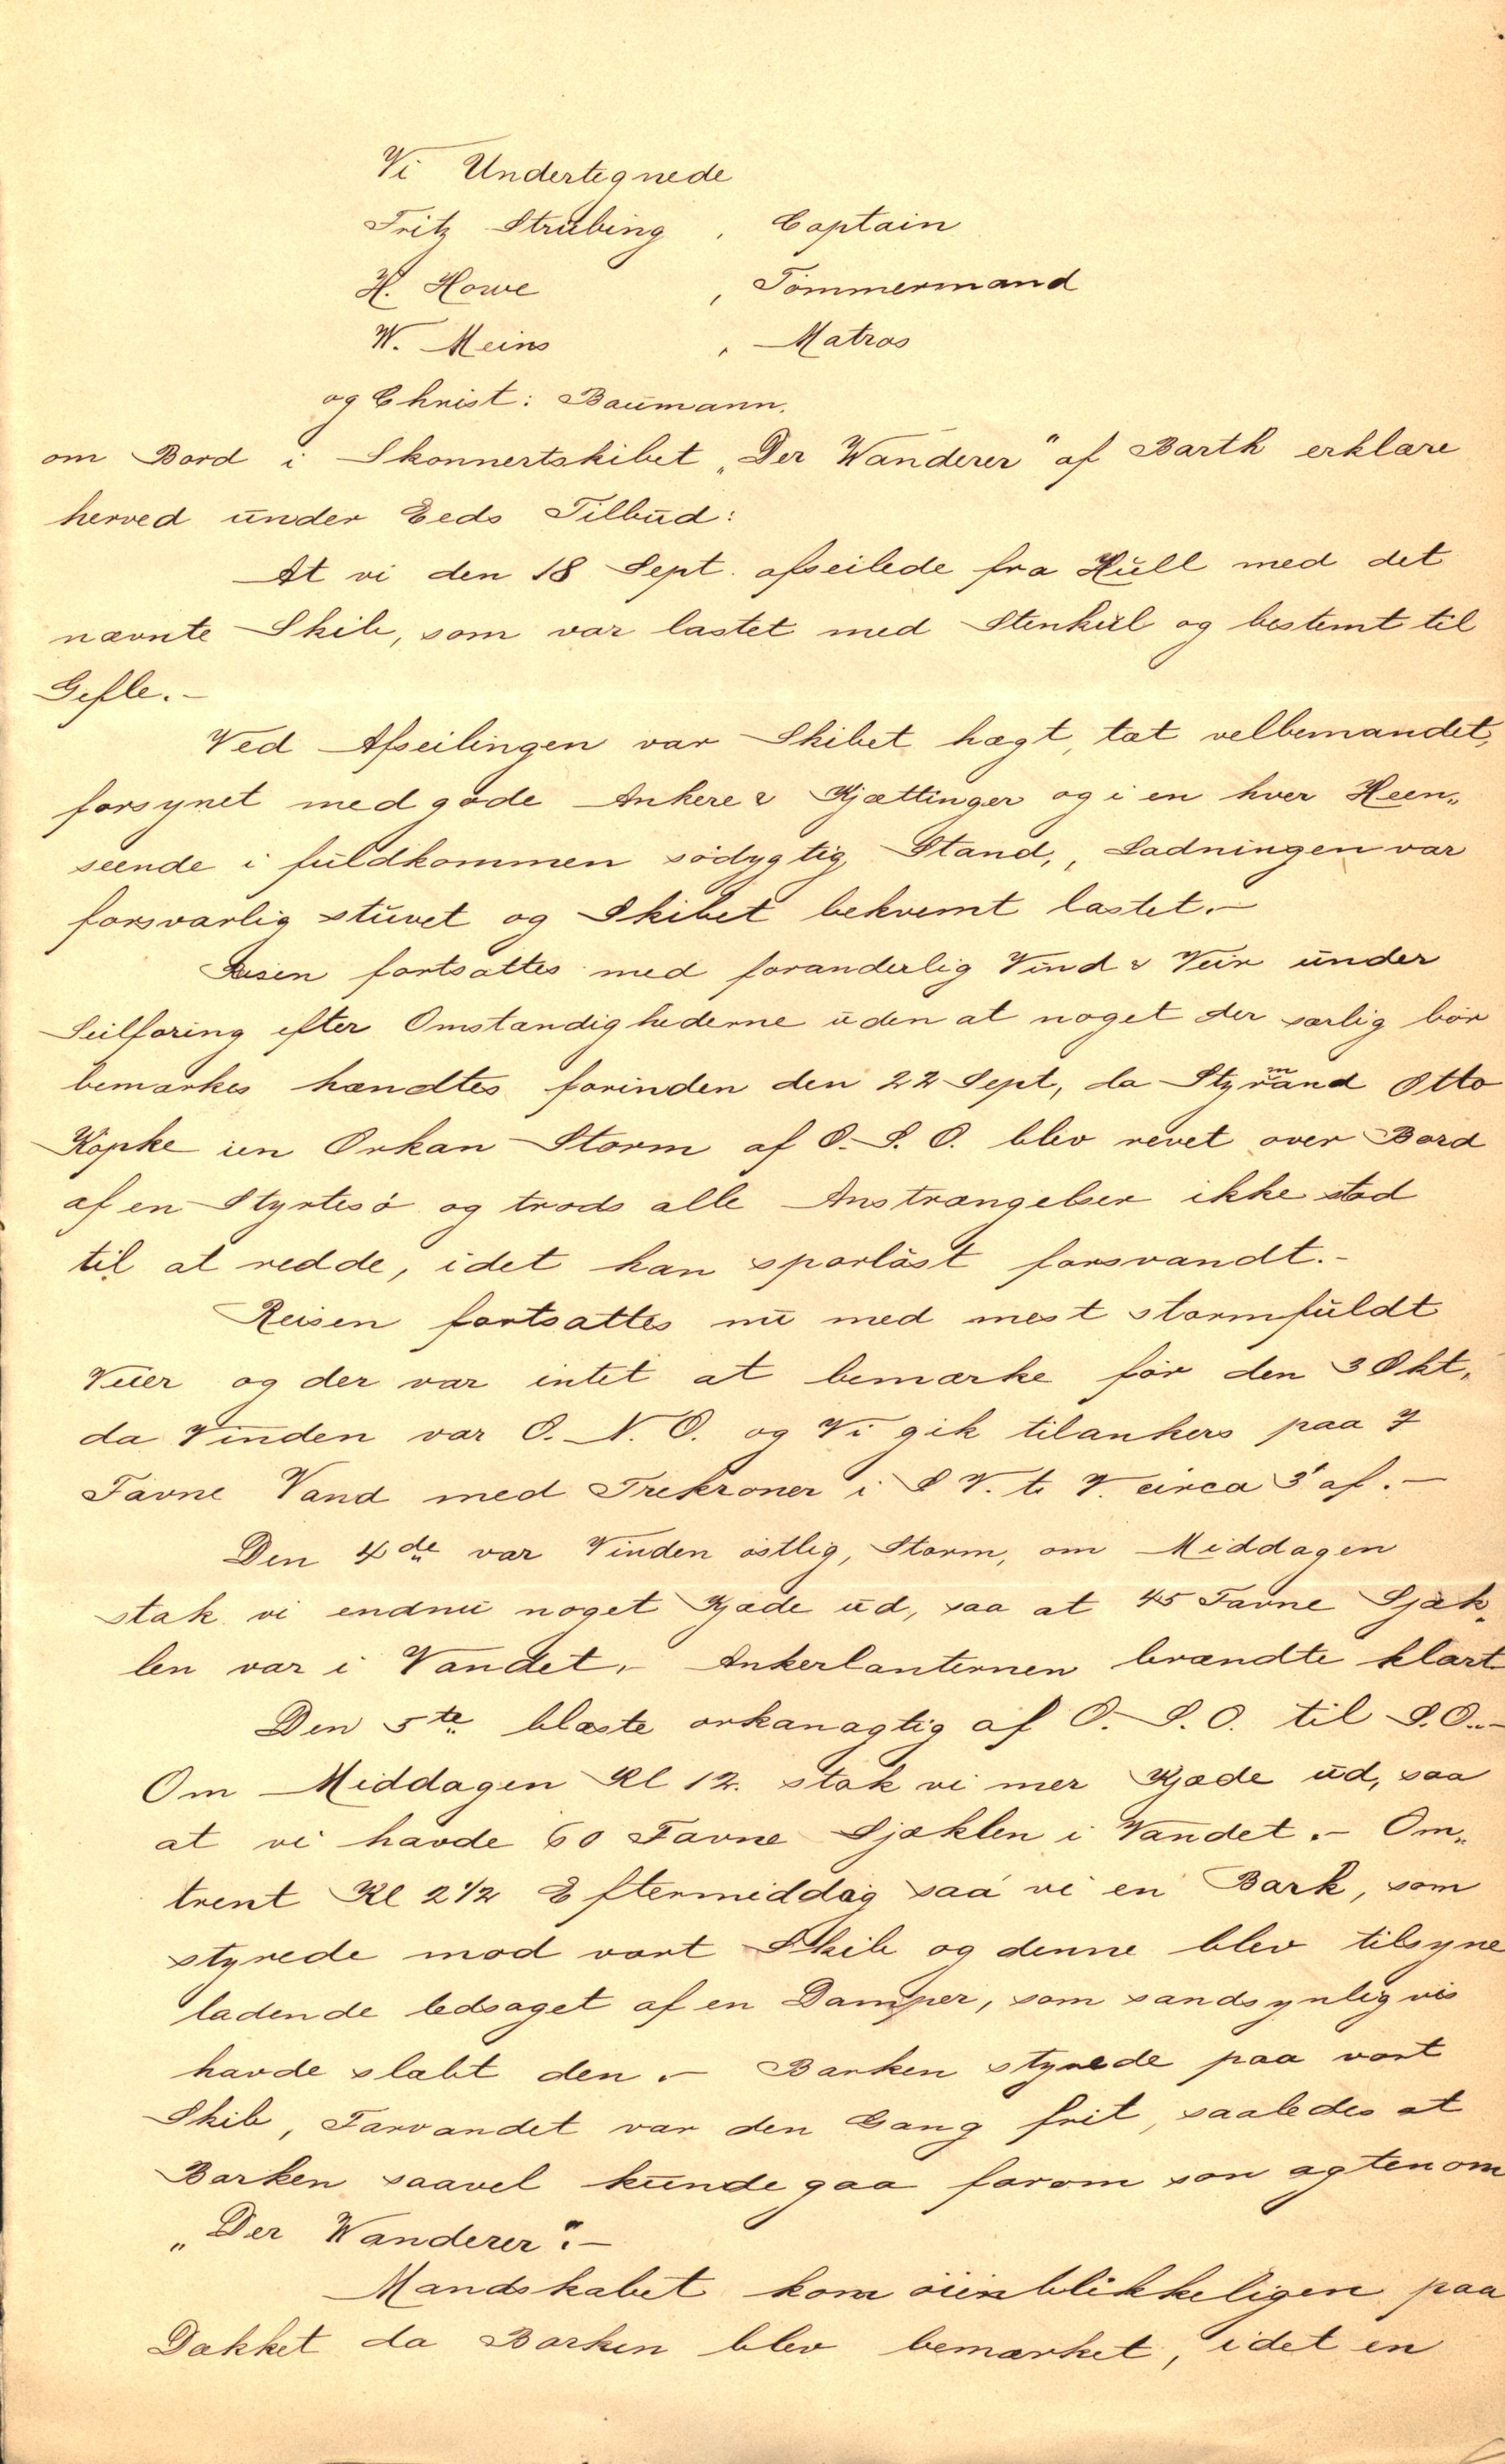 Vi Undertegnede
Fritz Strübing , Captain
H. Howe , Tömmermand
W. Meins , Matros
og Christ: Baumann.
om Bord i Skonnertskibet „Der Wanderer" af Barth erklære
herved under Eeds Tilbud:
At vi den 18 Sept. afseilede fra Hull med det
nævnte Skib, som var lastet med Stenkul og bestemt til
Gefle.-
Ved Afseilingen var Skibet hægt, tæt velbemandet,
forsynet med gode Ankere & Kjættinger og i en hver Heen„
seende i fuldkommen södygtig Stand,, Ladningen var
forsvarlig stuvet og Skibet bekvemt lastet.-
Reisen fortsattes med foranderlig Vind & Veir under
Seilföring efter Omstændighederne uden at noget der særlig bör
bemærkes hændtes forinden den 22 Sept, da Styrmand Otto
Köpke i en Orkan Storm af O. S. O. blev revet over Bord
af en Styrtesö og trods alle Anstrængelser ikke stod
til at redde, idet han sporlöst forsvandt.-
Reisen fortsattes nu med mest stormfuldt
Veier og der var intet at bemærke för den 3 Okt,
da Vinden var O. N. O. og Vi gik tilankers paa 7
Favne Vand med Trekroner i S V. t. V. circa 3' af.-
Den 4de var Vinden östlig, Storm, om Middagen
stak vi endnu noget Kjæde ud, saa at 45 Favne Sjæk„
len var i Vandet.- Ankerlanternen brændte klart
Den 5te blæste orkanagtig af O. S. O. til S. O..-
Om Middagen Kl 12. stak vi mer Kjæde ud, saa
at vi havde 60 Favne Sjæklen i Vandet.- Om„
trent Kl 2 1/2 Eftermiddag saa vi en Bark, som
styrede mod vort Skib og denne blev tilsyne
ladende ledsaget af en Damper, som sandsynligvis
havde slæbt den.- Barken styrede paa vort
Skib, Farvandet var den Gang frit, saaledes at
Barken saavel kunde gaa forom son agtenom
„Der Wanderer".-
Mandskabet kom öienblikkeligen paa
Dækket da Barken blev bemærket, idet en